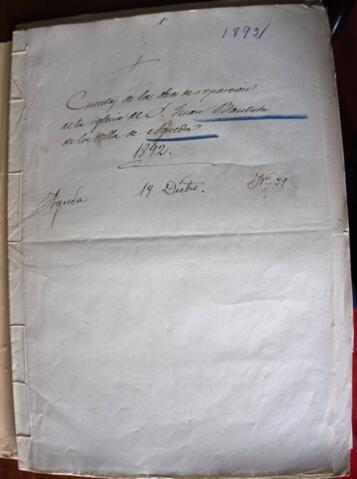 1892/
Cuentas de las obras de reparacion
de la iglesia de S. Juan Bautista
de la villa de Agreda
1892.
Agreda 19 Dicbre. Nº 39